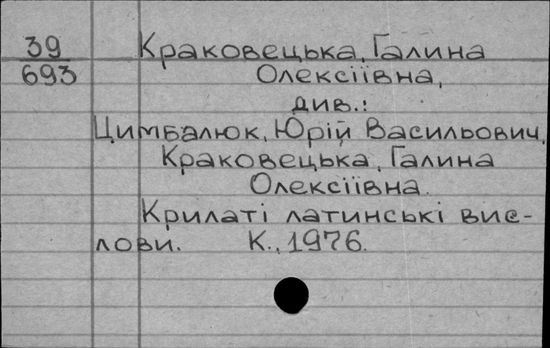 39 Краковецька, Галина
693 Олексіївна,
див.:
Цимбалюк, Юрій Васильович,
Краковецька, Галина
Олексіївна.
Крилаті латинські вис-
лови. К., 1976.